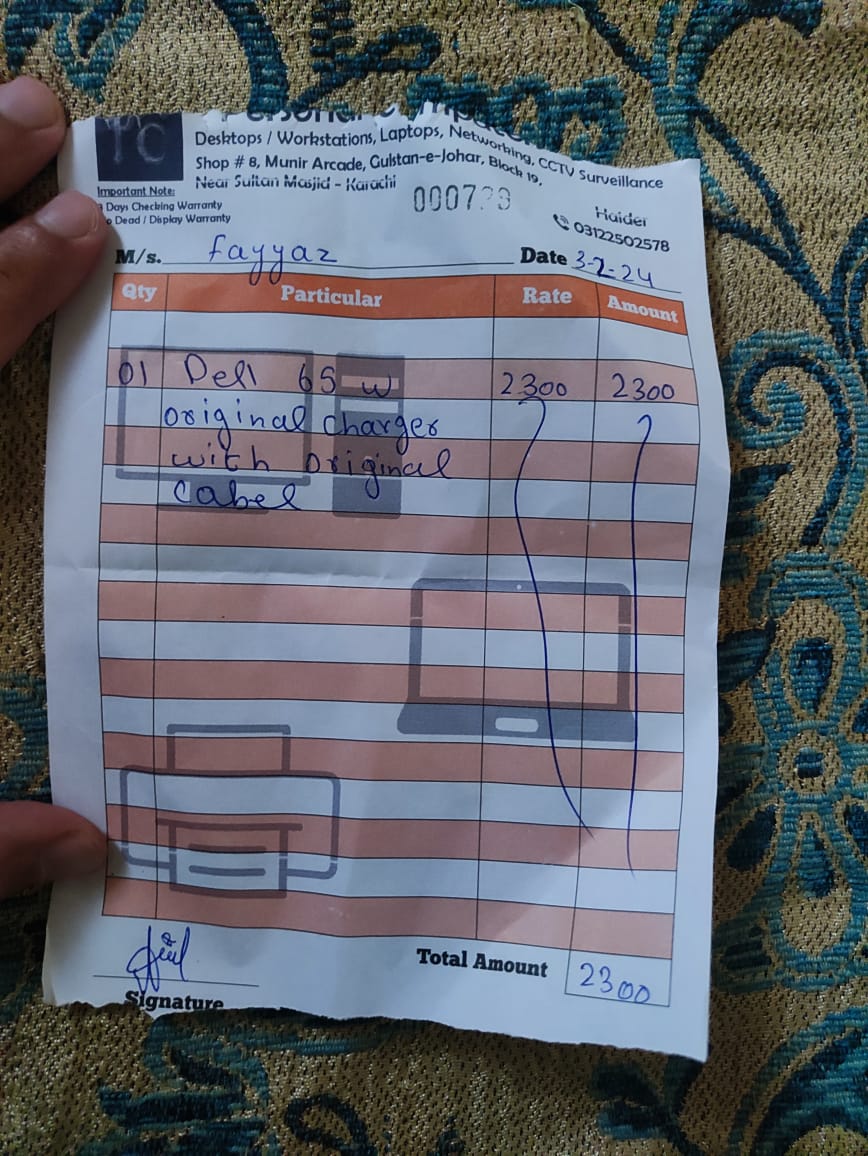 PC
Desktops / Workstations, Laptops, Networking, CCTV Surveillance
Shop # 8, Munir Arcade, Gulstan-e-Johar, Block 19,
Near Sultan Masjid - Karachi
Important Note:
Days Checking Warranty
Dead / Display Warranty
Haider
03122502578
M/s. fayyaz
Date 3-2-24
Qty Particular Rate Amount
01 Dell 65 w 2300 2300
original charger
with original
cabel
Total Amount 2300
Signature